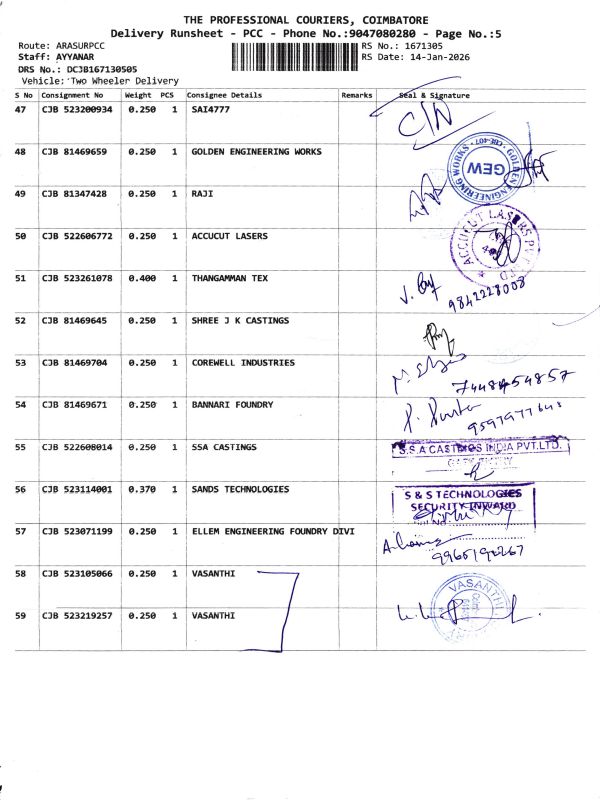 THE PROFESSIONAL COURIERS, COIMBATORE
Delivery Runsheet - PCC - Phone No.:9047080280 - Page No.:5
Route: ARASURPCC RS No.: 1671305
Staff: AYYANAR RS Date: 14-Jan-2026
DRS No.: DCJB167130505
Vehicle: Two Wheeler Delivery
S No Consignment No Weight PCS Consignee Details Remarks Seal & Signature
47 CJB 523200934 0.250 1 SAI4777 C/N
48 CJB 81469659 0.250 1 GOLDEN ENGINEERING WORKS
GOLDEN ENGINEERING WORKS CBE-407
GEW
49 CJB 81347428 0.250 1 RAJI
50 CJB 522606772 0.250 1 ACCUCUT LASERS
ACCUCUT LASERS PVT LTD
51 CJB 523261078 0.400 1 THANGAMMAN TEX
9842228008
52 CJB 81469645 0.250 1 SHREE J K CASTINGS
53 CJB 81469704 0.250 1 COREWELL INDUSTRIES
54 CJB 81469671 0.250 1 BANNARI FOUNDRY
55 CJB 522608014 0.250 1 SSA CASTINGS
S.S.A CASTINGS INDIA PVT.LTD.
56 CJB 523114001 0.370 1 SANDS TECHNOLOGIES
S & S TECHNOLOGIES
SECURITY INWARD
57 CJB 523071199 0.250 1 ELLEM ENGINEERING FOUNDRY DIVI
58 CJB 523105066 0.250 1 VASANTHI
VASANTHI
59 CJB 523219257 0.250 1 VASANTHI